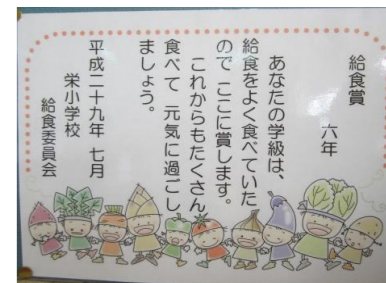 給食賞
六年
あなたの学級は、
給食をよく食べていた
ので ここに賞します。
これからもたくさん
食べて 元気に過ごし
ましょう。
平成二十九年 七月
栄小学校
給食委員会